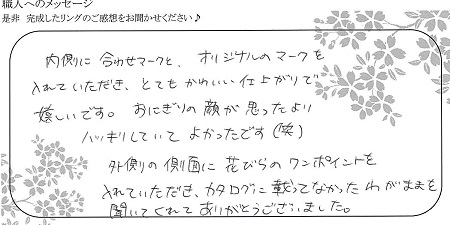 職人へのメッセージ
是非 完成したリングのご感想をお聞かせください♪
内側に合わせマークと、オリジナルのマークを
入れていただき、とてもかわいい仕上がりで
嬉しいです。おにぎりの顔が思ったより
ハッキリしていてよかったです(笑)
外側の側面に花びらのワンポイントを
入れていただき、カタログに載ってなかったわがままを
聞いてくれてありがとうございました。